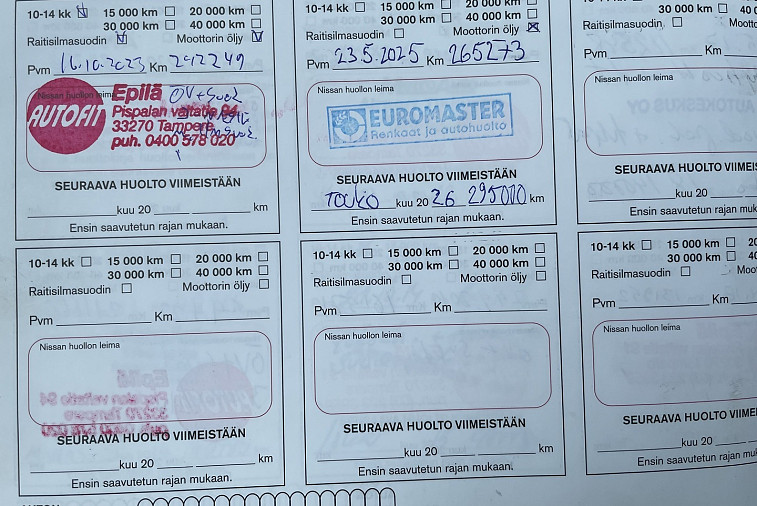 10-14 kk 15 000 km 20 000 km
30 000 km 40 000 km
Raitisilmasuodin Moottorin öljy
Pvm 16.10.2023 Km 242249
Nissan huollon leima
AUTOFIT
Epilä
Pispalan valtatie 94
33270 Tampere
puh. 0400 578 020
SEURAAVA HUOLTO VIIMEISTÄÄN
kuu 20 km
Ensin saavutetun rajan mukaan.
10-14 kk 15 000 km 20 000 km
30 000 km 40 000 km
Raitisilmasuodin Moottorin öljy
Pvm 23.5.2025 Km 265273
Nissan huollon leima
EUROMASTER
Renkaat ja autohuolto
SEURAAVA HUOLTO VIIMEISTÄÄN
Touko kuu 20 26 295000 km
Ensin saavutetun rajan mukaan.
10-14 kk 15 000 km
30 000 km 40
Raitisilmasuodin
Pvm Km
Nissan huollon leima
SEURAAVA HUOLTO VIIMEIS
kuu 20
Ensin saavutetun rajan muk
10-14 kk 15 000 km 20 000 km
30 000 km 40 000 km
Raitisilmasuodin Moottorin öljy
Pvm Km
Nissan huollon leima
Epilä
Pispalan valtatie 94
33270 Tampere
SEURAAVA HUOLTO VIIMEISTÄÄN
kuu 20 km
Ensin saavutetun rajan mukaan.
10-14 kk 15 000 km 20 000 km
30 000 km 40 000 km
Raitisilmasuodin Moottorin öljy
Pvm Km
Nissan huollon leima
SEURAAVA HUOLTO VIIMEISTÄÄN
kuu 20 km
Ensin saavutetun rajan mukaan.
10-14 kk 15 000 km 20
30 000 km 40 0
Raitisilmasuodin Moot
Pvm Km
Nissan huollon leima
SEURAAVA HUOLTO VIIME
kuu 20
Ensin saavutetun rajan m